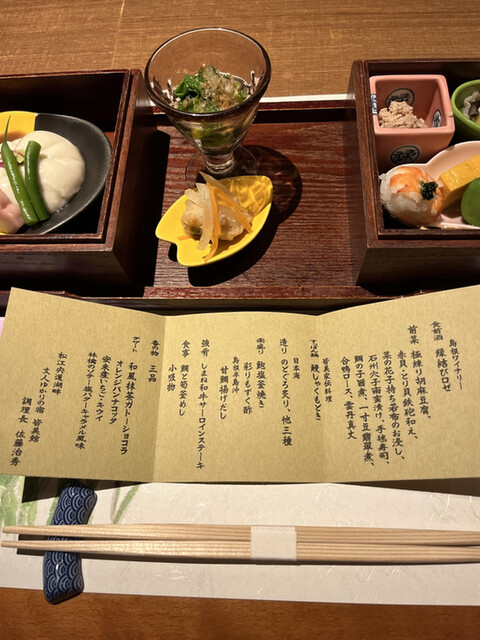 島根ワイナリー
食前酒 縁結びロゼ
前菜 極練り胡麻豆腐、
赤貝・とり貝鉄砲和え、
菜の花子持ち若布のお浸し、
石州穴子南蛮漬け、手毬寿司、
鯛の子旨煮、一寸豆翡翠煮、
合鴨ロース、雲丹真丈
皆美家伝料理
すっぽん鍋 鰻しゃくもどき
日本海
造り のどぐろ炙り、他三種
島根半島沖
家盛り 鮑塩釜焼き
彩りもずく酢
甘鯛揚げだし
強肴 しまね和牛サーロインステーキ
食事 鯛と筍釜めし
小吸物
香の物 三品
デザート 和風抹茶ガトーショコラ
オレンジパンナコッタ
安来産いちご・キウイ
林檎のシナモン塩バターキャラメル風味
松江宍道湖畔
文人ゆかりの宿 皆美館
調理長 佐藤治秀